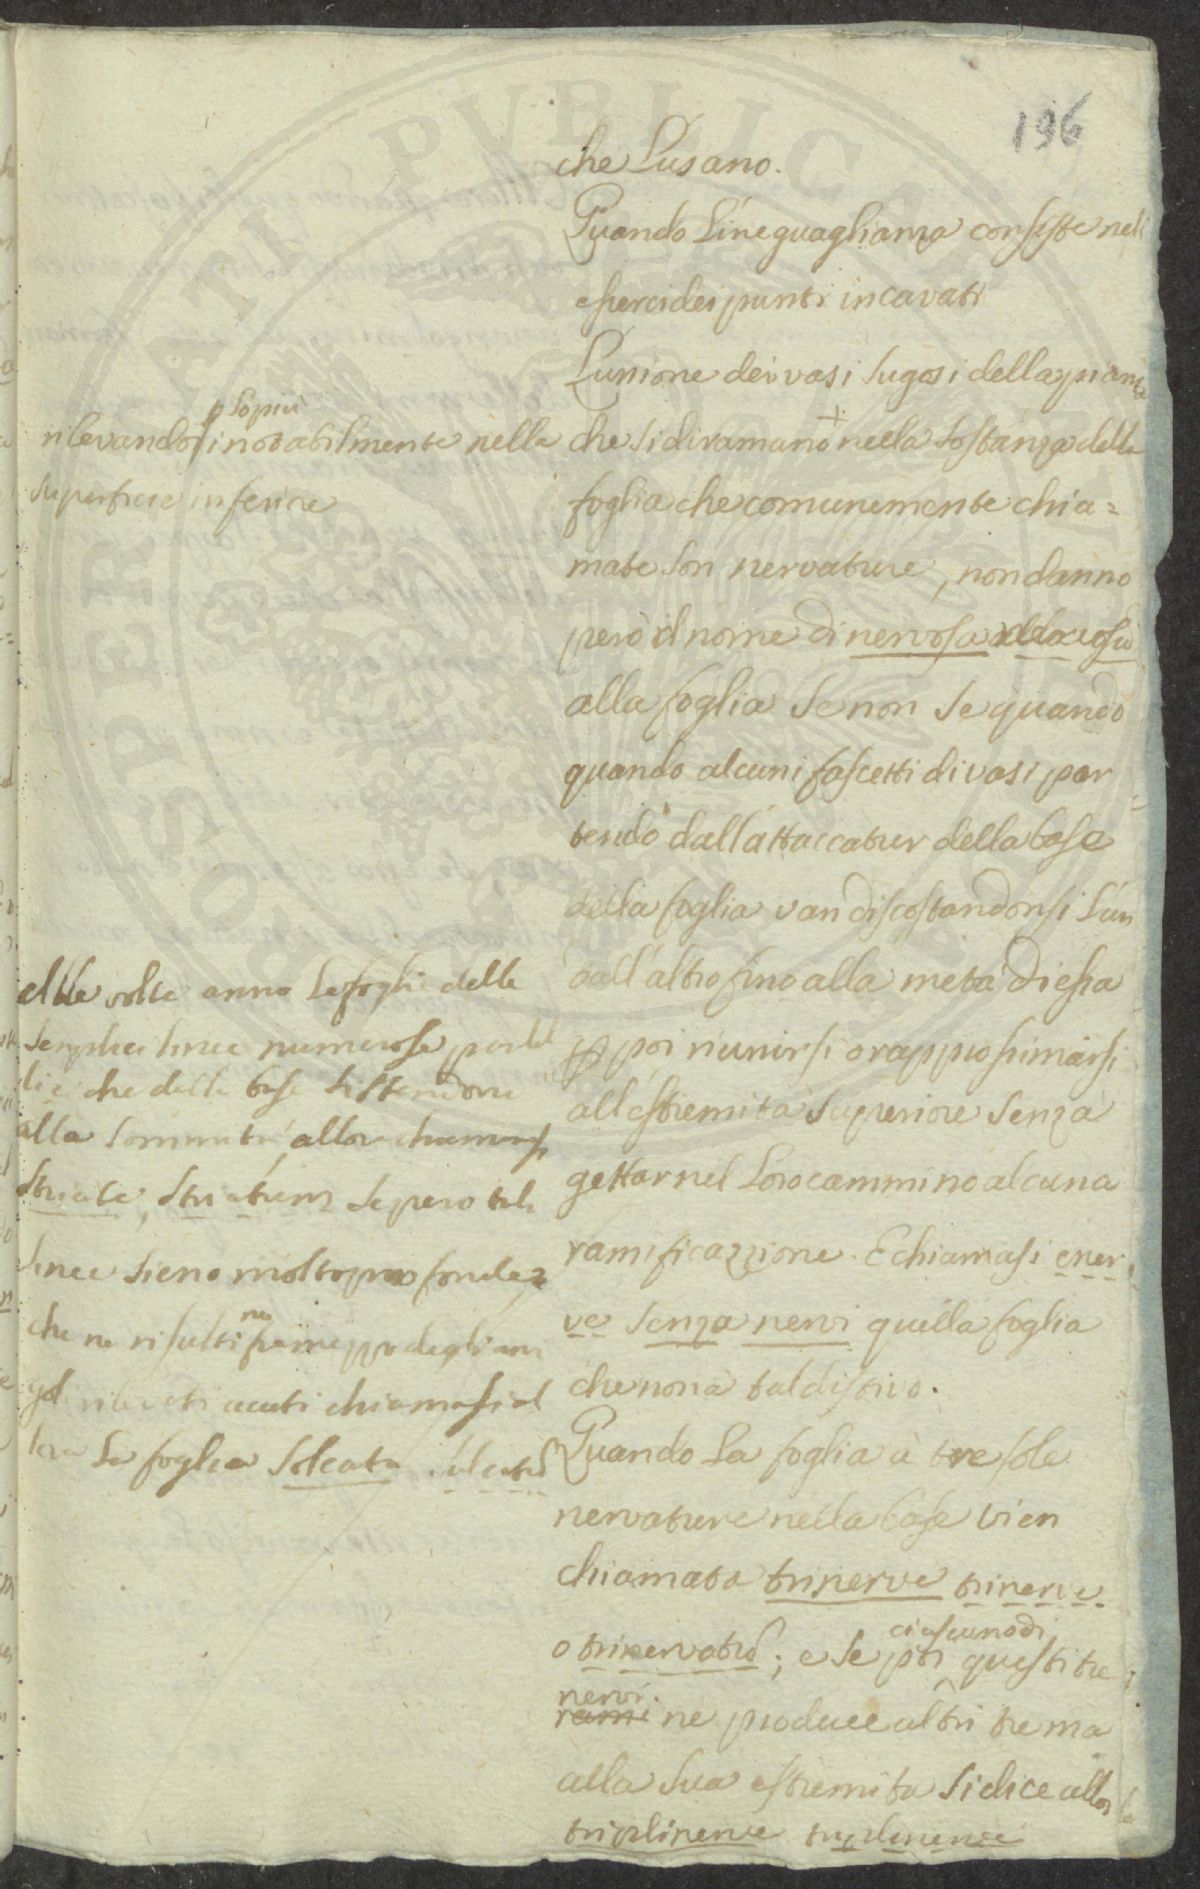 196
che l'usano.
Quando l'ineguagliama consiste nell
esserci dei punti incavati
L'unione dei vasi sugosi della pianta
che si diramano + nella sostanza della
foglia che comunemente chia=
mate son nervature, non danno
però il nome di nervosa
alla foglia se non se quando
quando alcuni fascetti di vasi par
tendo dall'attaccatur della base
della foglia van discostandonsi l'un
dall'altro fino alla metà di essa
poi riunirsi o rapprossimarsi
all'estremità superiore senza
gettar nel loro cammino alcuna
ramificazzione. E chiamasi ener
ve senza nervi quella foglia
che non à tal distivo.
Quando la foglia à tre sole
nervature nella base vien
chiamata trinerve trinerve
o trinervatus; e se ciascuno di questi tre
nervi rami ne produce altri tre ma
alla sua estremità si dice allor
triplinerve triplinerve
rilevandosi lo più notabilmente nella
superficie inferiore
Alle volte anno le foglie delle
semplici linee numerose paralel
lie che dalla base si stendono
alla sommità, allora chiamansi
striate, striatum se però tali
linee sieno molto profonde
che ne risulti framezzo degli an
goli rilevati acuti chiamasi al
lora la foglia solcata sulcatus